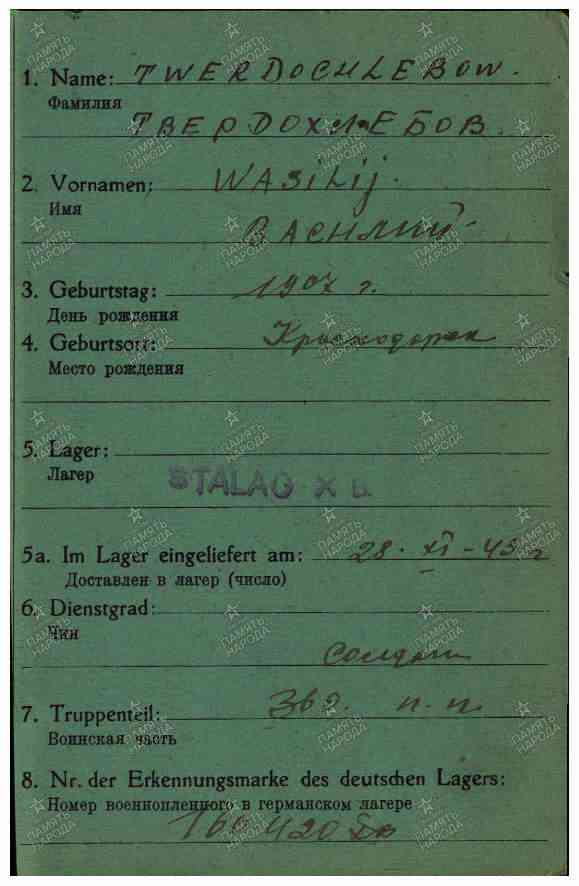 1. Name: TWERDOCHLEBOW.
Фамилия
ТВЕРДОХЛЕБОВ.
2. Vornamen: WASiLij.
Имя
ВАСИЛИЙ
3. Geburtstag: 1907 г.
День рождения
4. Geburtsort:
Место рождения
5. Lager:
Лагер
STALAG X B.
5a. Im Lager eingeliefert am: 28. XI - 43 г
Доставлен в лагер (число)
6. Dienstgrad:
Чин
солдат
7. Truppenteil: п. п.
Воинская часть
8. Nr. der Erkennungsmarke des deutschen Lagers:
Номер военнопленного в германском лагере
ПАМЯТЬ НАРОДА